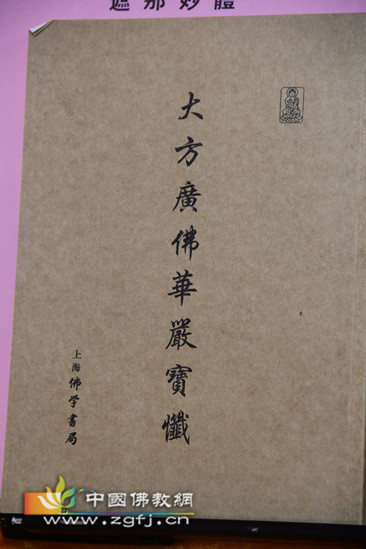 遮那妙體
大方廣佛華嚴寶懺
上海佛学書局
中國佛教網
www.zgfj.cn